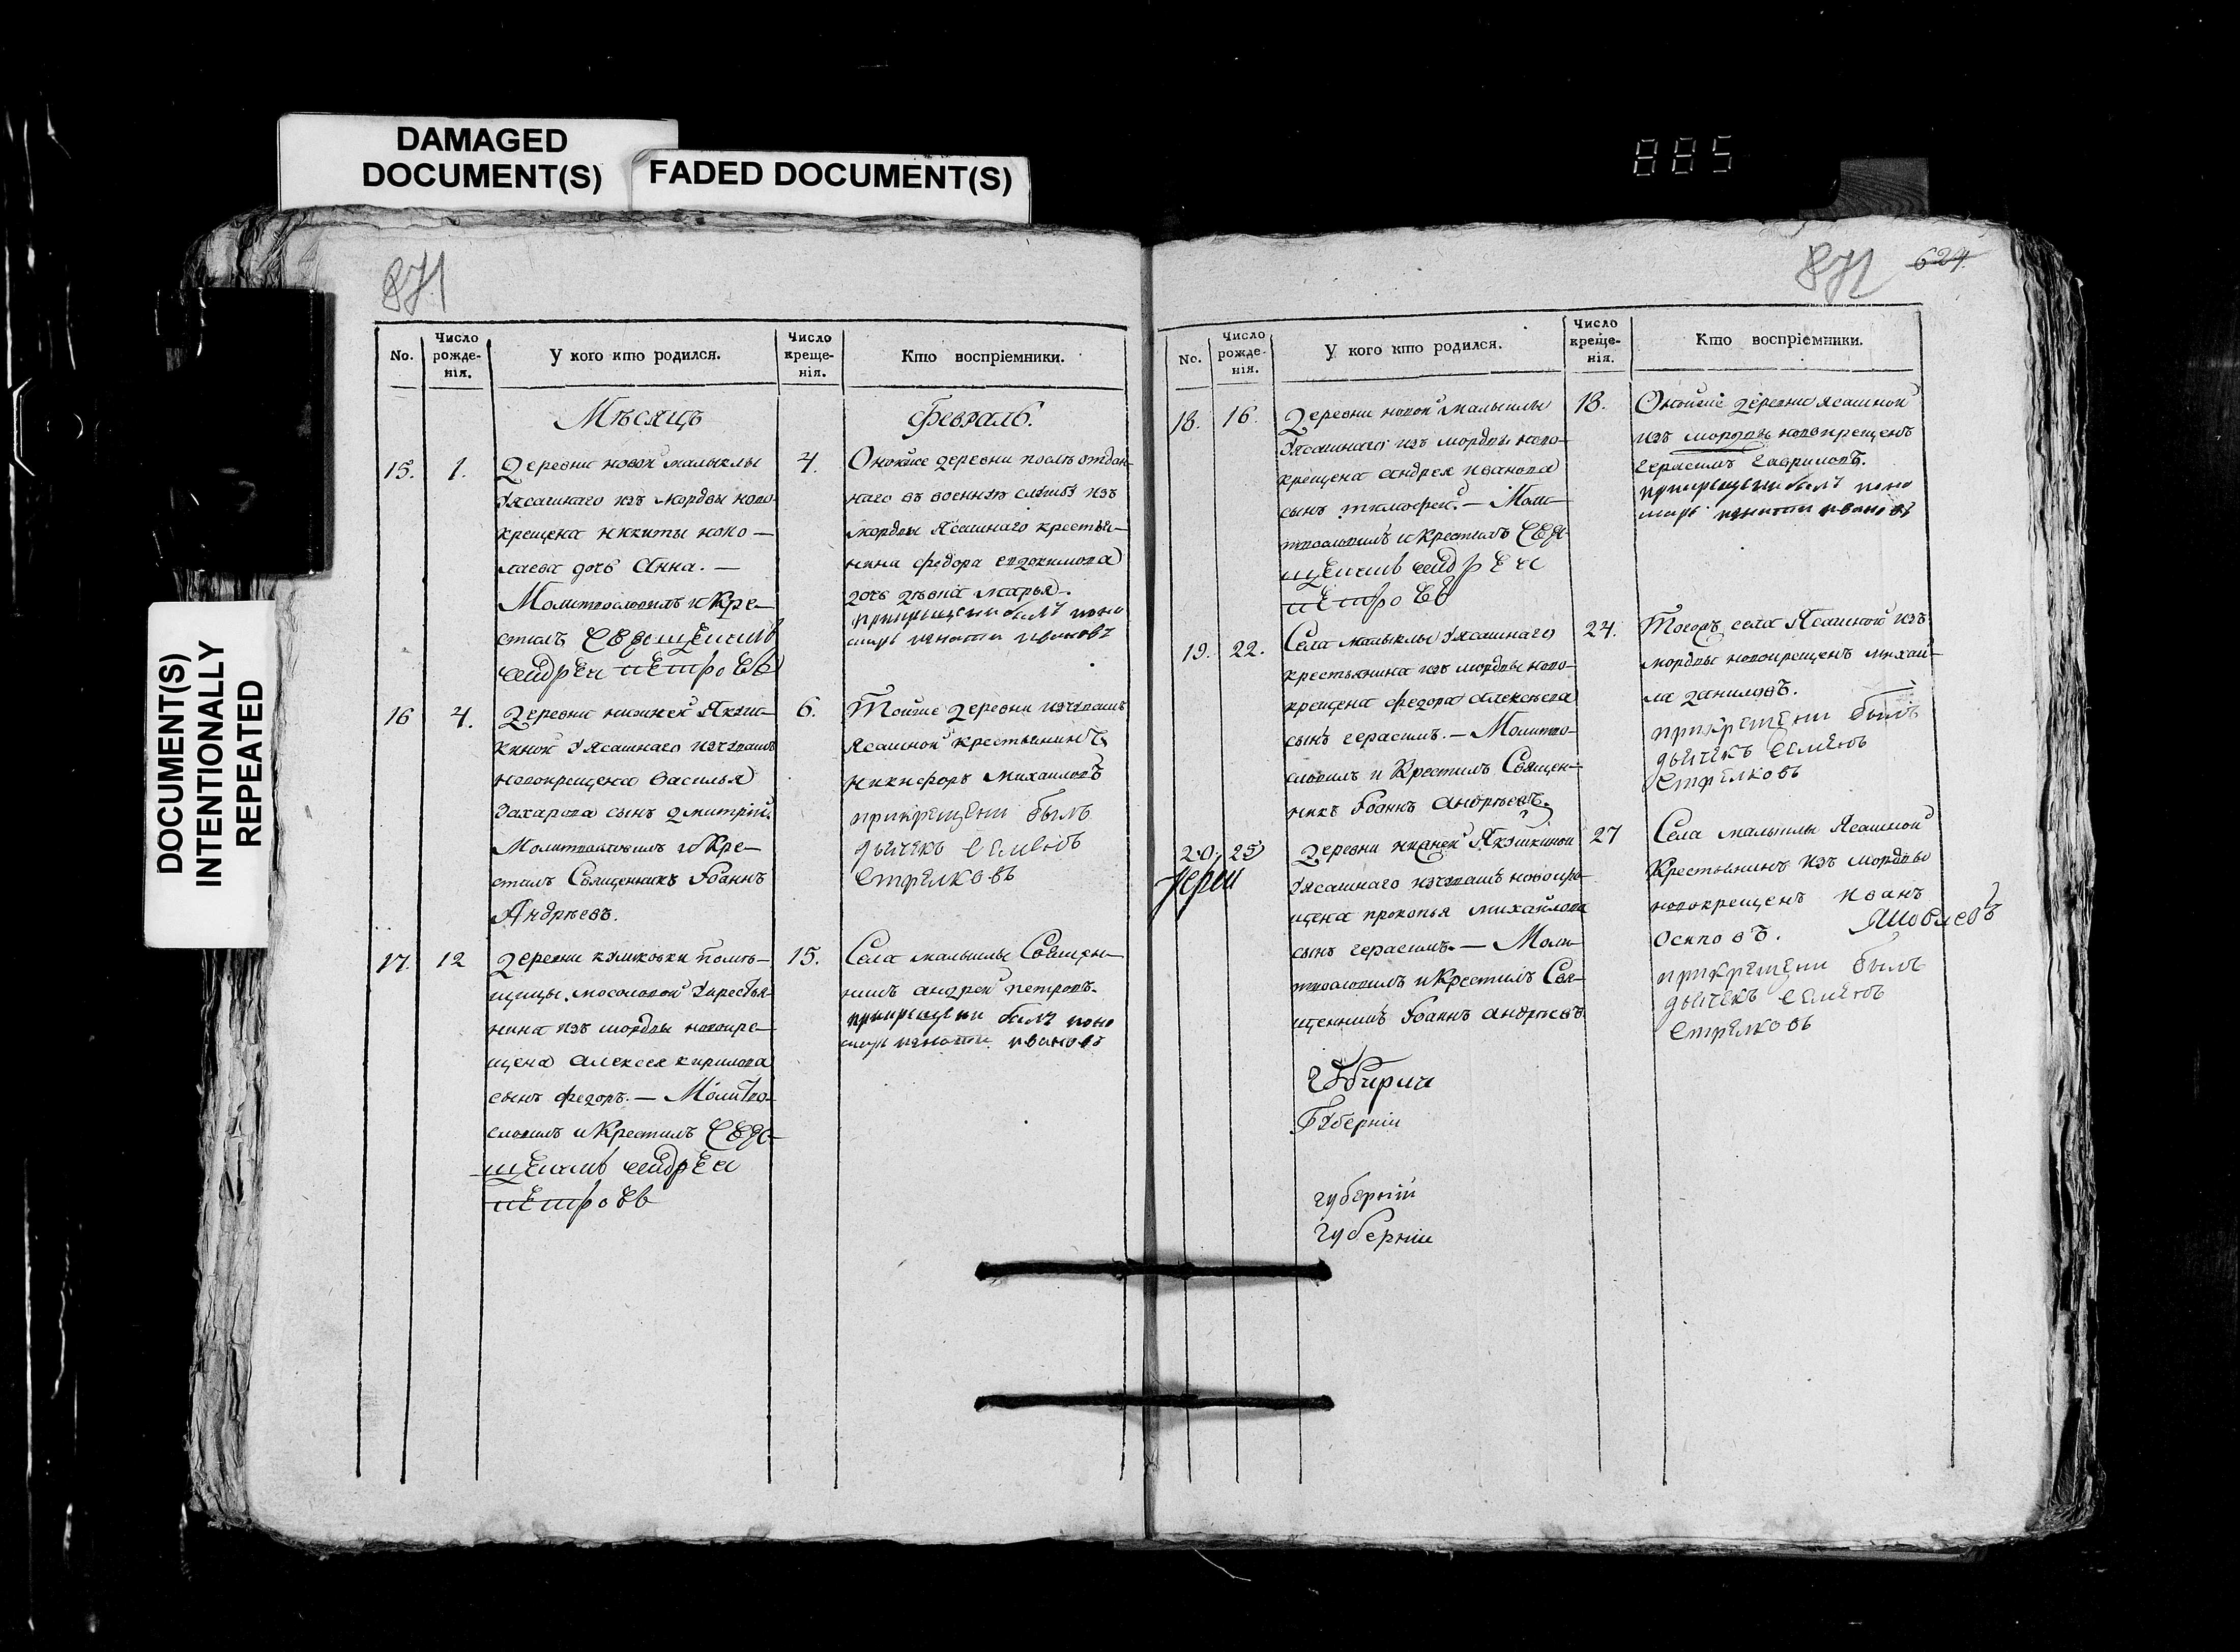 DAMAGED
DOCUMENT(S)
FADED DOCUMENT(S)
DOCUMENT(S)
INTENTIONALLY
REPEATED
885
871
No.
Число
рожде-
нія.
У кого кто родился.
Число
креще-
нія.
Кто воспріемники.
Мѣсяцъ
Февраль.
15. 1.
Деревни новой малыклы
Уясашнаго изъ мордвы ново-
крещена никиты нико-
лаева дочь Анна. —
Молитвословилъ и Кре-
стилъ Священникъ
андрей петровъ
4.
Оной же деревни послѣ отдан-
наго въ военную службу изъ
мордвы Ясашнаго крестья-
нина федора евдокимова
дочь дѣвка марья.
прикрещении былъ поно
марь игнатий ивановъ
16 4.
Деревни нижней Якуш-
киной Уясашнаго изчувашъ
новокрещена василья
Захарова сынъ дмитрий.
Молитвословилъ и Кре-
стилъ Священникъ Іоаннъ
Андрѣевъ.
6.
Тойже деревни изчувашъ
Ясашной крестьянинъ
никифоръ михайловъ
прикрещении былъ
дьячекъ семенъ
стрелковъ
17. 12
Деревни помѣ-
щицы мосоловой Укрестья-
нина изъ мордвы новокре-
щена алексея кирилова
сынъ федоръ. — Молитво-
словилъ и Крестилъ Свя-
щенникъ андрей
петровъ
15.
Села малыклы Священ-
никъ андрей петровъ.
прикрещении былъ поно
марь игнатий ивановъ
871 624.
No.
Число
рожде-
нія.
У кого кто родился.
Число
креще-
нія.
Кто воспріемники.
18. 16.
Деревни новой малыклы
Уясашнаго изъ мордвы ново-
крещена андрея иванова
сынъ тимофей. — Моли-
твословилъ и крестилъ Свя-
щенникъ андрей
петровъ
18.
Оной же деревни ясашной
изъ мордвы новокрещенъ
герасимъ гавриловъ.
прикрещении былъ поно
марь игнатий ивановъ
19. 22.
Села малыклы Уясашнаго
крестьянина изъ мордвы ново-
крещена федора алексѣева
сынъ герасимъ. — Молитво-
словилъ и Крестилъ Священ-
никъ Іоаннъ андрѣевъ.
24.
Тогожъ села Ясашной изъ
мордвы новокрещенъ михай-
ла даниловъ.
прикрещении былъ
дьячекъ семенъ
стрелковъ
20. 25
Иерей
Деревни нижней Якушкиной
Уясашнаго изчувашъ новокре-
щена прокопья михайлова
сынъ герасимъ. — Моли-
твословилъ и Крестилъ Свя-
щенникъ Іоаннъ андрѣевъ
27
Села малыклы Ясашной
Крестьянинъ изъ мордвы
новокрещенъ иванъ
осиповъ. Яковлевъ
прикрещении былъ
дьячекъ семенъ
стрелковъ
Губерніи
губерніи
губерніи